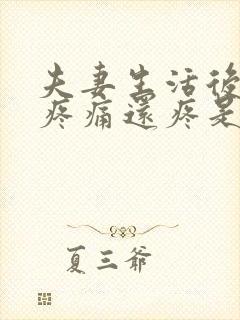 夫妻生活後
疼痛還疼是
夏三爺